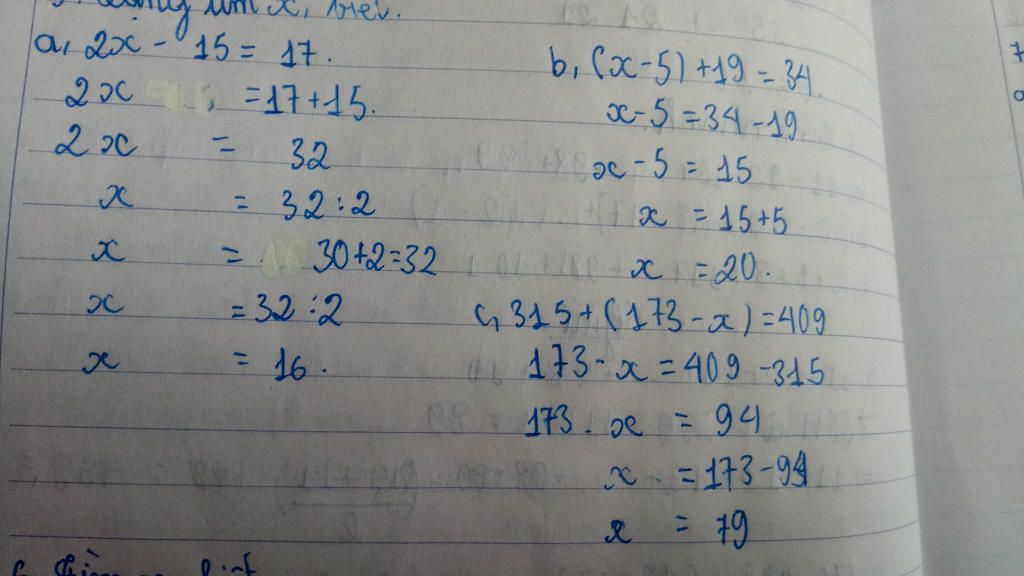 x, biết.
a, 2x - 15 = 17.
2x = 17 + 15.
2x = 32
x = 32 : 2
x = 30 + 2 = 32
x = 32 : 2
x = 16.
b, (x - 5) + 19 = 34
x - 5 = 34 - 19
x - 5 = 15
x = 15 + 5
x = 20.
c, 315 + (173 - x) = 409
173 - x = 409 - 315
173 - x = 94
x = 173 - 94
x = 79